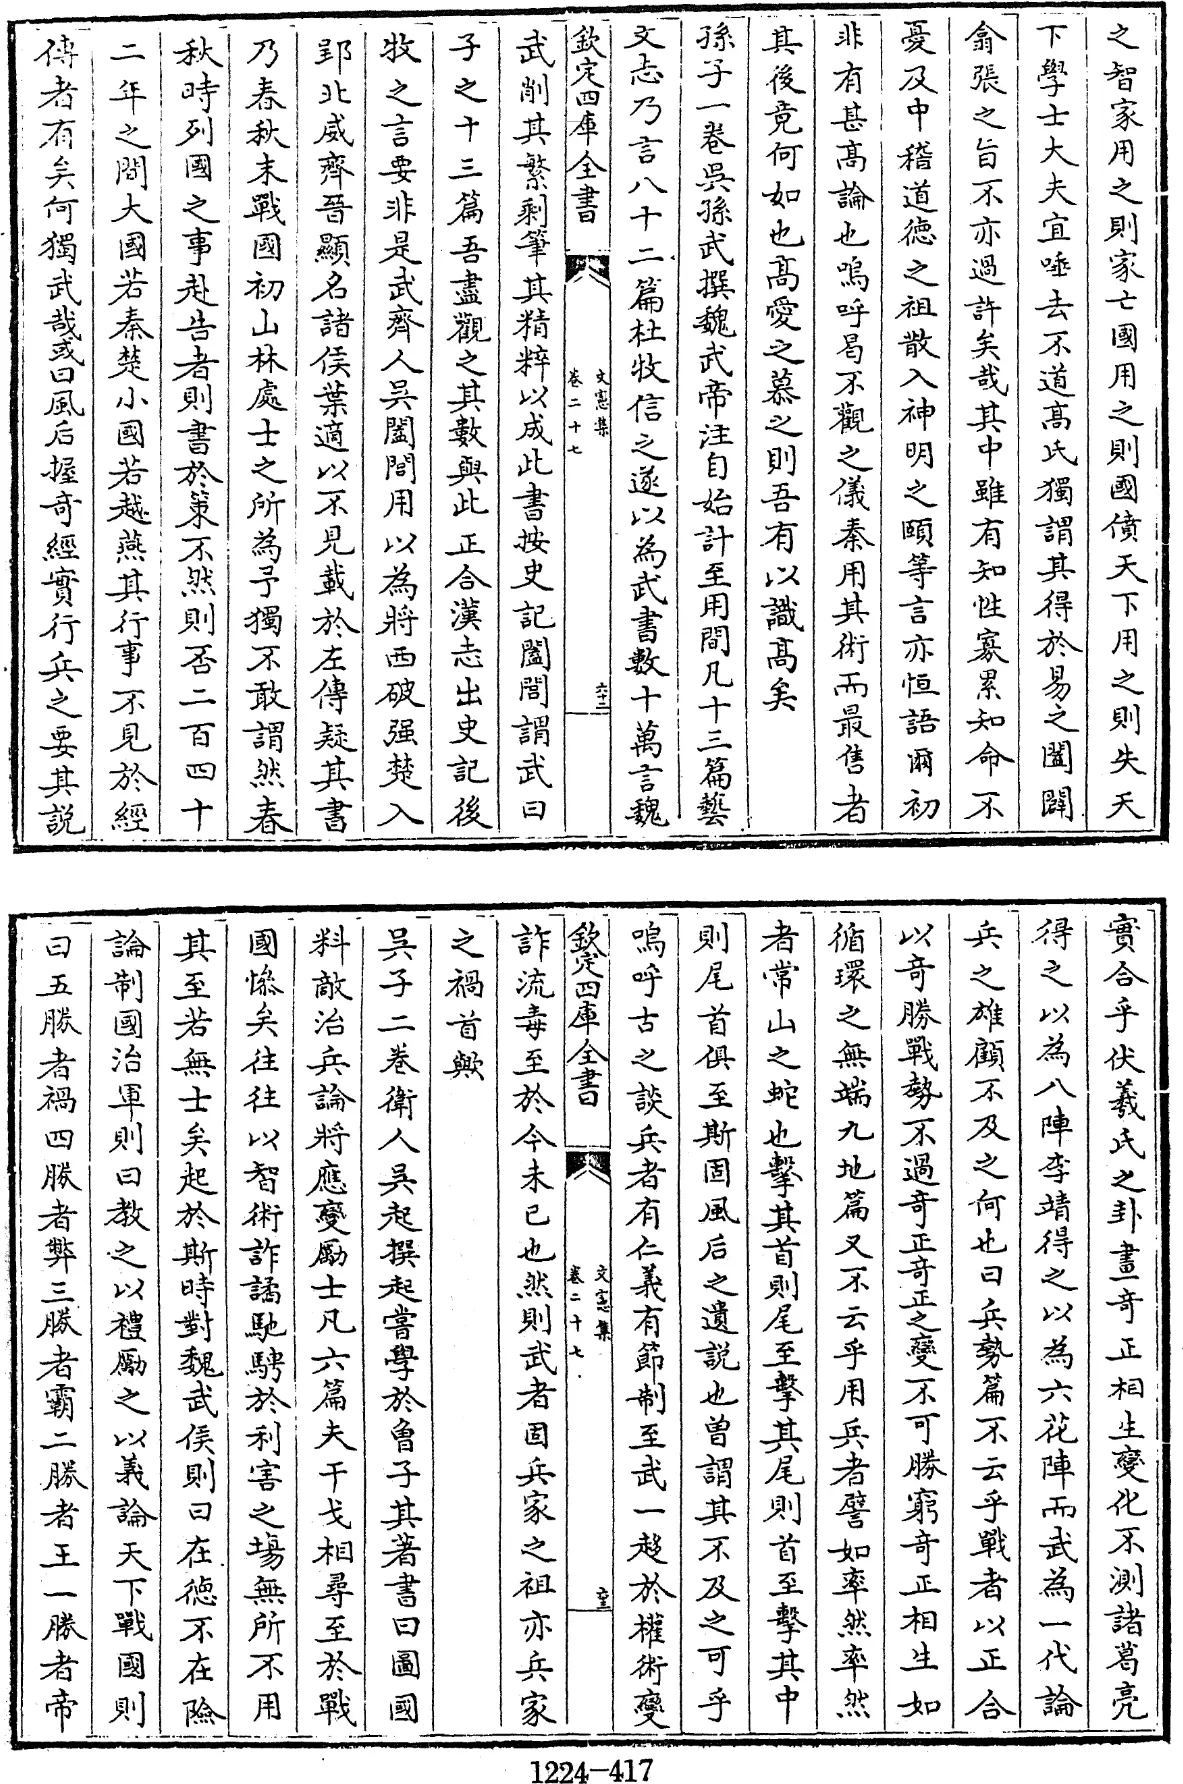 之智家用之則家亡國用之則國僨天下用之則失天
下學士大夫宜唾去不道髙氏獨謂其得於易之闔闢
翕張之㫖不亦過許矣哉其中雖有知性寡累知命不
憂及中稽道徳之祖散入神明之頤等言亦恒語爾初
非有甚髙論也嗚呼曷不觀之儀秦用其術而最售者
其後竟何如也髙愛之慕之則吾有以識髙矣
孫子一卷吳孫武撰魏武帝注自始計至用間凡十三篇藝
文志乃言八十二篇杜牧信之遂以為武書數十萬言魏
欽定四庫全書
文憲集
卷二十七
六十二
武削其繁剩筆其精粹以成此書按史記闔閭謂武曰
子之十三篇吾盡觀之其數與此正合漢志出史記後
牧之言要非是武齊人吳闔閭用以為將西破强楚入
郢北威齊晉顯名諸侯葉適以不見載於左傳疑其書
乃春秋末戰國初山林處士之所為予獨不敢謂然春
秋時列國之事赴告者則書於策不然則否二百四十
二年之間大國若秦楚小國若越燕其行事不見於經
傳者有矣何獨武哉或曰風后握奇經實行兵之要其説
實合乎伏羲氏之卦畫奇正相生變化不測諸葛亮
得之以為八陣李靖得之以為六花陣而武為一代論
兵之雄顧不及之何也曰兵勢篇不云乎戰者以正合
以奇勝戰勢不過奇正奇正之變不可勝窮奇正相生如
循環之無端九地篇又不云乎用兵者譬如率然率然
者常山之蛇也擊其首則尾至擊其尾則首至擊其中
則尾首俱至斯固風后之遺説也曽謂其不及之可乎
嗚呼古之談兵者有仁義有節制至武一趍於權術變
欽定四庫全書
文憲集
卷二十七
六十三
詐流毒至於今未已也然則武者固兵家之祖亦兵家
之禍首歟
吳子二卷衛人吳起撰起嘗學於曽子其著書曰圖國
料敵治兵論將應變勵士凡六篇夫干戈相尋至於戰
國慘矣往往以智術詐譎馳騁於利害之場無所不用
其至若無士矣起於斯時對魏武侯則曰在徳不在險
論制國治軍則曰教之以禮勵之以義論天下戰國則
曰五勝者禍四勝者弊三勝者霸二勝者王一勝者帝
1224—417